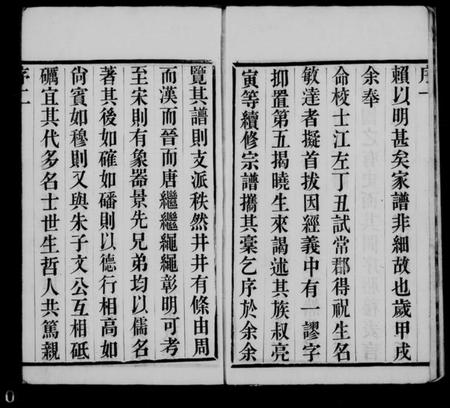 序一
賴以明甚矣家譜非細故也歲甲戌
余奉
命校士江左丁丑試常郡得祝生名
敏達者擬首拔因經義中有一謬字
抑置第五揭曉生來謁述其族叔亮
寅等續修宗譜攜其稾乞序於余余
覽其譜則支派秩然井井有條由周
而漢而晉而唐繼繼繩繩彰明可考
至宋則有象器景先兄弟均以儒名
著其後如確如磻則以德行相高如
尙賓如穆則又與朱子文公互相砥
礪宜其代多名士世生哲人共篤親
序二
0